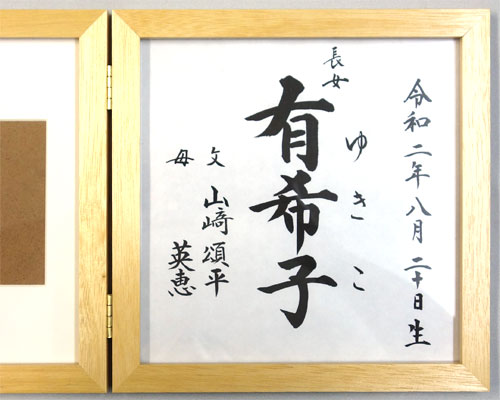 令和二年八月二十日生
ゆきこ
長女
有希子
父 山﨑頌平
母 英恵